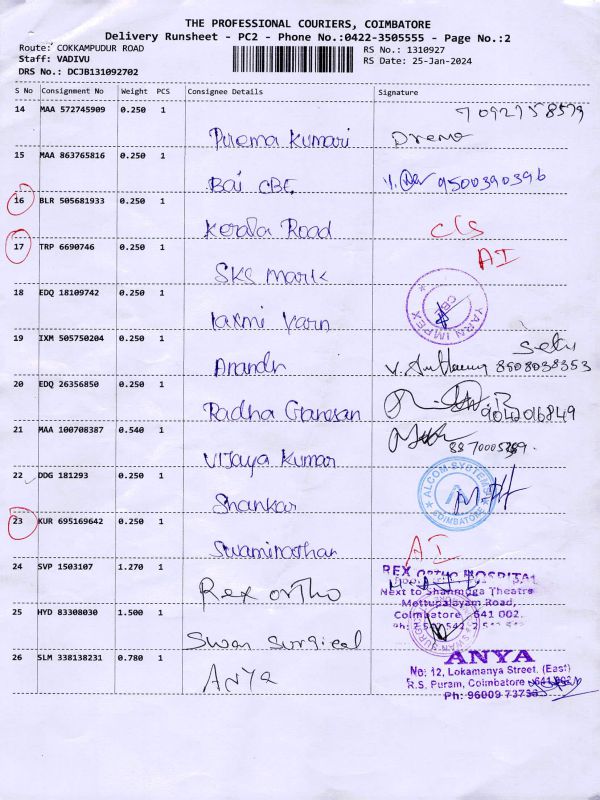 THE PROFESSIONAL COURIERS, COIMBATORE
Delivery Runsheet - PC2 - Phone No.:0422-3505555 - Page No.:2
Route: COKKAMPUDUR ROAD
RS No.: 1310927
Staff: VADIVU
RS Date: 25-Jan-2024
DRS No.: DCJB131092702
S No Consignment No Weight PCS Consignee Details Signature
14 MAA 572745909 0.250 1
7092758579
Prema Kumari
15 MAA 863765816 0.250 1
Bai CBE
9500390396
16 BLR 505681933 0.250 1
Kerala Road
C/S
17 TRP 6690746 0.250 1
AI
SKS Mark
18 EDQ 18109742 0.250 1
YARN IMPEX
CBE
laxmi Yarn
19 IXM 505750204 0.250 1
Anandh
8508038353
20 EDQ 26356850 0.250 1
Radha Ganesan
9042016849
21 MAA 100708387 0.540 1
Vijaya Kumar
22 DDG 181293 0.250 1
ALCOM SYSTEMS
COIMBATORE
Shankar
23 KUR 695169642 0.250 1
AI
Swaminathan
24 SVP 1503107 1.270 1
REX ORTHO HOSPITAL
Next to Shanmuga Theatre
Mettupalayam Road,
Coimbatore 641 002.
Rex ortho
25 HYD 83308030 1.500 1
Swan Surgical
26 SLM 338138231 0.780 1
ANYA
No: 12, Lokamanya Street, (East)
R.S. Puram, Coimbatore - 641 002
Ph: 96009 73733
Anya